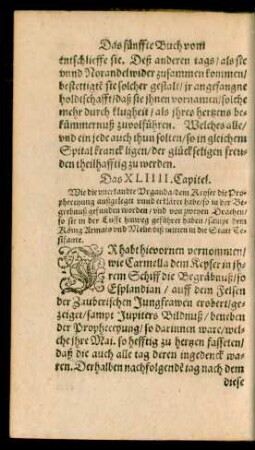 Das fünffte Buch vom
entschlieffe sie. Deß anderen tags/ als sie
vnnd Norandel wider zusammen kommen/
bestettigte sie solcher gestalt/ jr angefangne
holdtschafft/ daß sie jhnen vornamen/ solche
mehr durch klugheit/ als jhres hertzens be-
kümmernuß zuvolführen. Welches alle/
vnd ein jede auch thun solten/ so in gleichem
Spital kranck ligen/ der glückseligen freu-
den theilhafftig zu werden.
Das XLIIII. Capitel.
Wie die vnerkandte Vrganda/ dem Keyser die Pro-
phecepung außgelegt vnnd erkläret habe/ so in der Be-
grebnuß gefunden worden/ vnd von zweyen Drachen/
so sie in der Lufft hinweg geführet haben/ sampt dem
König Armato vnd Melie biß mitten in die Statt Te-
sifante.
IR habt hievornen vernommen/
wie Carmella dem Keyser in jh-
rem Schiff die Begräbnuß/ so
Esplandian/ auff dem Felsen
der Zauberischen Jungfrawen erobert/ ge-
zeiget/ sampt Jupiters Bildnuß/ beneben
der Propheceyung/ so darinnen ware/ wel-
che jhre Mai. so hefftig zu hertzen fasseten/
daß die auch alle tag deren ingedenck wa-
ren. Derhalben nachfolgendē tag nach dem
diese